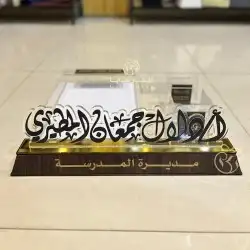 أ. دلال جمعان المطيري
مديرة المدرسة